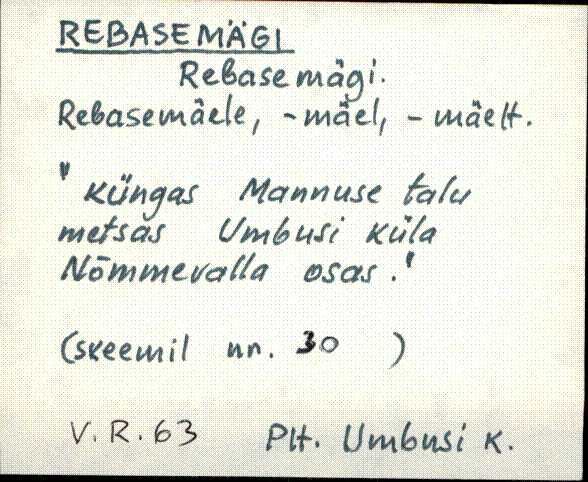 REBASEMÄGI
Rebasemägi.
Rebasemäele, -mäel, -mäelt.
"Küngas Mannuse talu
metsas Umbusi küla
Nõmmevalla osas."
(skeemil nr. 30 )
V.R.63 Plt. Umbusi k.